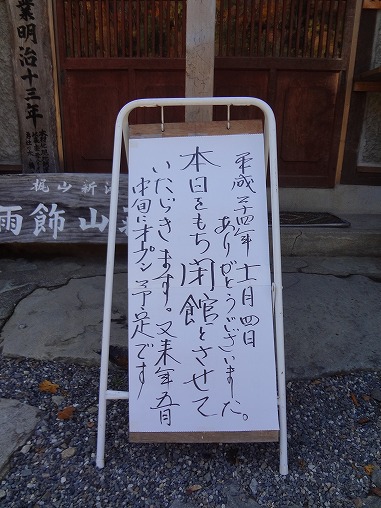 平成二十四年 十一月四日
ありがとうございました。
本日をもち閉館とさせて
いただきます。又来年五月
中旬にオープン予定です
業明治十三年
梶山新
雨飾山